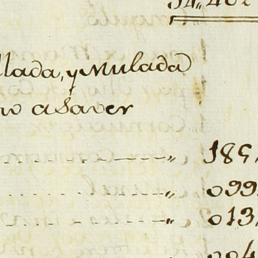 llada, y Mulada
no asaver
185
099
013
004